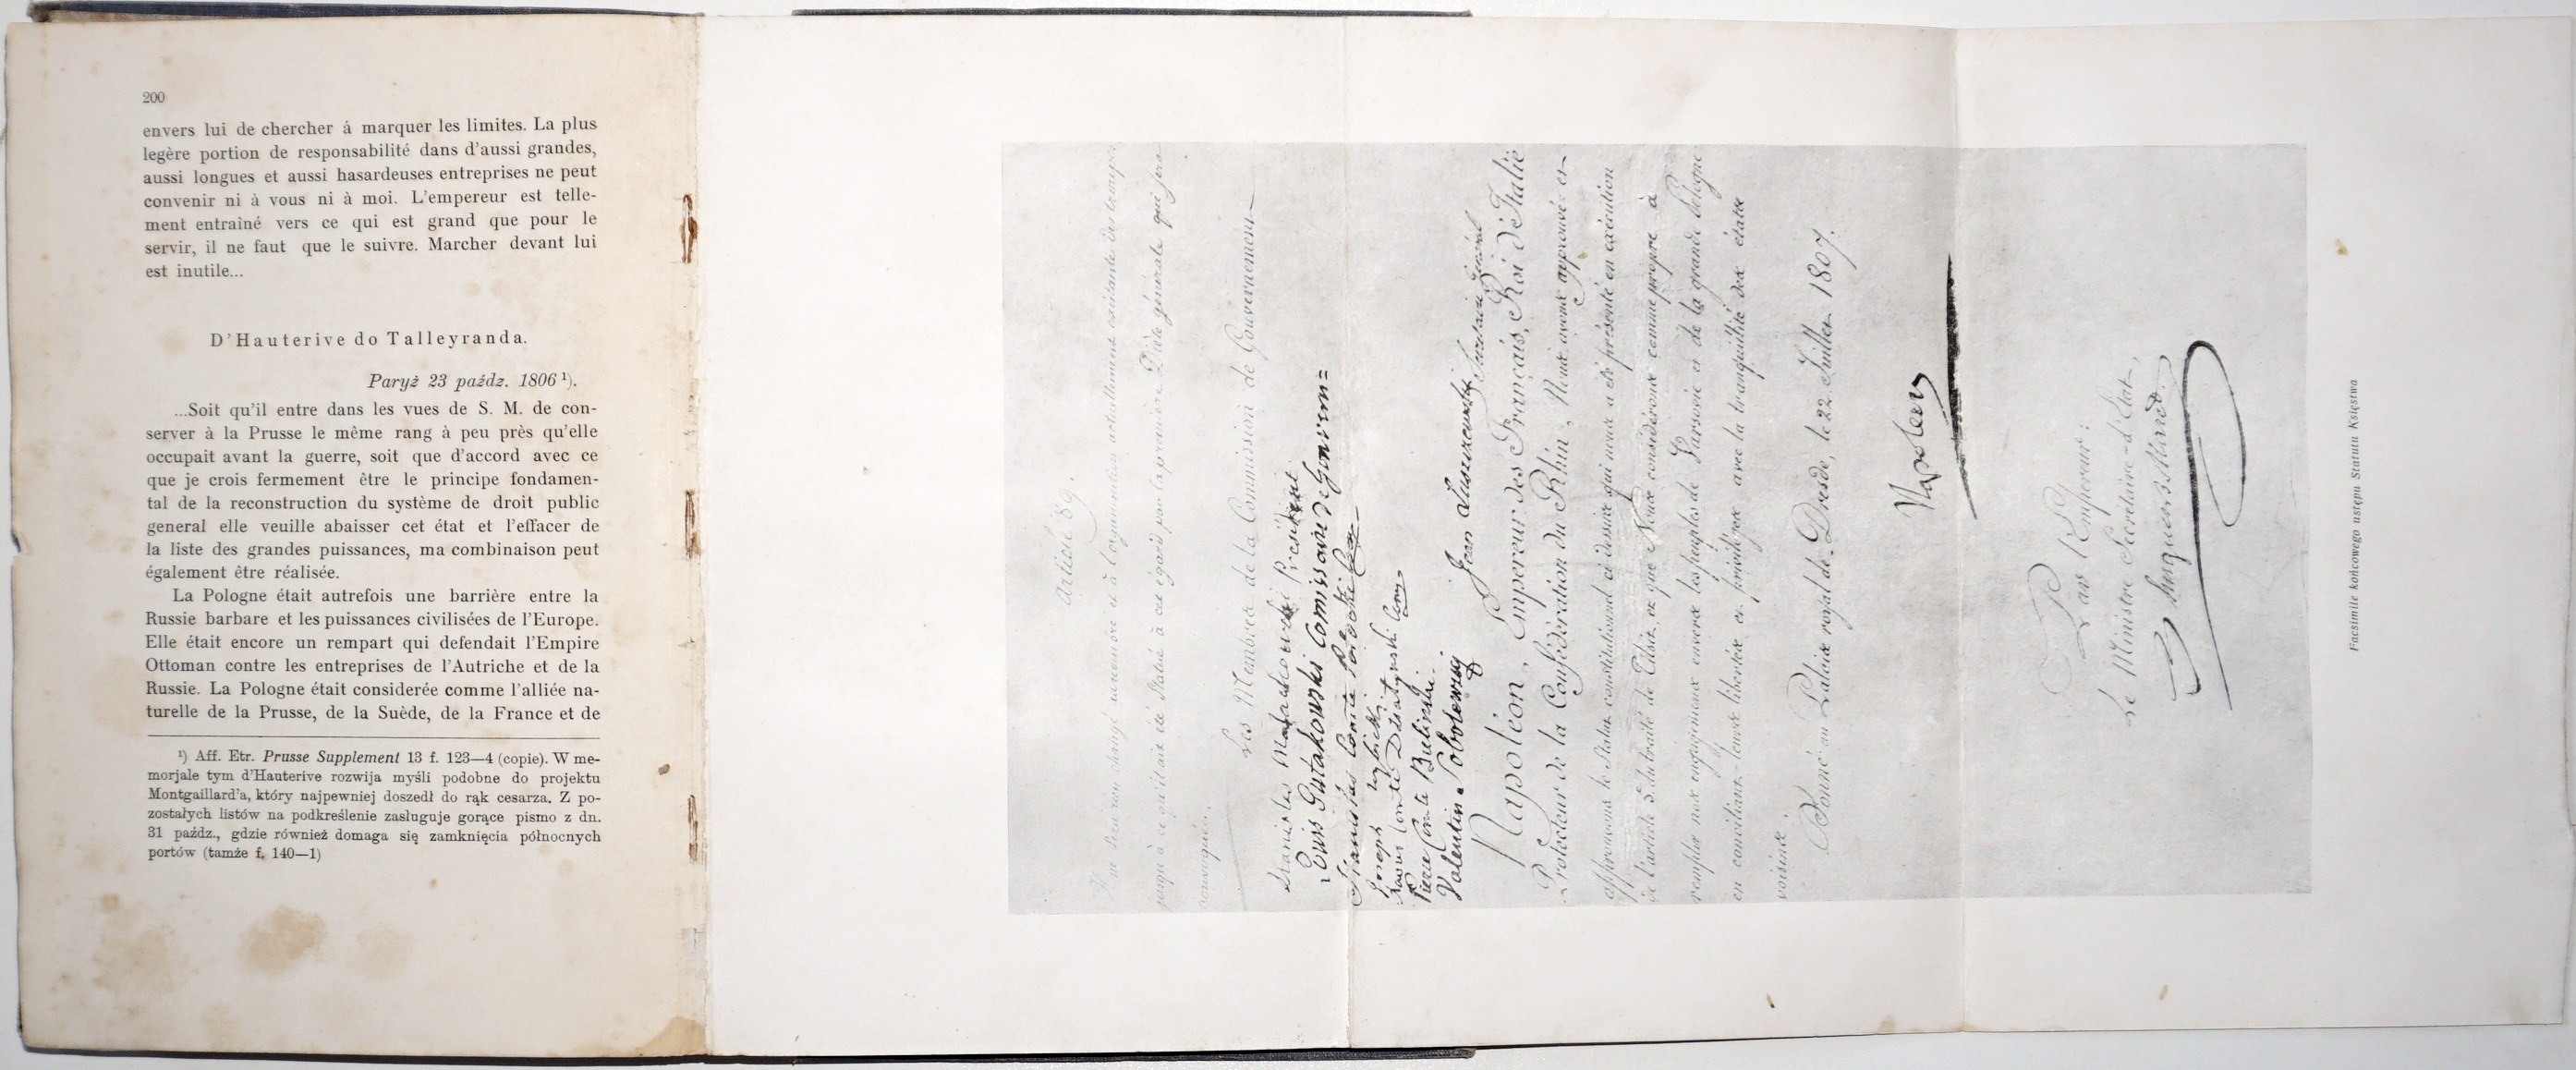 200
envers lui de chercher á marquer les limites. La plus
legère portion de responsabilité dans d'aussi grandes,
aussi longues et aussi hasardeuses entreprises ne peut
convenir ni à vous ni à moi. L'empereur est telle-
ment entraîné vers ce qui est grand que pour le
servir, il ne faut que le suivre. Marcher devant lui
est inutile...
D'Hauterive do Talleyranda.
Paryż 23 paźdz. 1806 ¹).
...Soit qu'il entre dans les vues de S. M. de con-
server à la Prusse le même rang à peu près qu'elle
occupait avant la guerre, soit que d'accord avec ce
que je crois fermement être le principe fondamen-
tal de la reconstruction du système de droit public
general elle veuille abaisser cet état et l'effacer de
la liste des grandes puissances, ma combinaison peut
également être réalisée.
La Pologne était autrefois une barrière entre la
Russie barbare et les puissances civilisées de l'Europe.
Elle était encore un rempart qui defendait l'Empire
Ottoman contre les entreprises de l'Autriche et de la
Russie. La Pologne était considerée comme l'alliée na-
turelle de la Prusse, de la Suède, de la France et de
¹) Aff. Etr. Prusse Supplement 13 f. 123—4 (copie). W me-
morjale tym d'Hauterive rozwija myśli podobne do projektu
Montgaillard'a, który najpewniej doszedł do rąk cesarza. Z po-
zostałych listów na podkreślenie zasługuje gorące pismo z dn.
31 paźdz., gdzie również domaga się zamknięcia północnych
portów (tamże f. 140—1)
Article 89.
jusqu'à ce qu'il ait été statué à cet égard par la première Diète générale qui sera
convoquée.
Les Membres de la Commission de Gouvernement
Stanislas Malachowski Président
Louis Gutakowski Comissaire de Gouvern=
Stanislas Comte Potocki
Joseph Wybicki
Xavier Comte Dzialynski
Pierre Comte Bielinski.
Valentin Sobolewski
Jean Luszczewski Secrétaire Général
Napoléon, Empereur des Français, Roi d'Italie
Protecteur de la Confédération du Rhin, Nous avons approuvé et
approuvons le Statut constitutionnel ci dessus qui nous a été présenté en exécution
de l'article 5. du traité de Tilsit, et que Nous considérons comme propre à
remplir nos engagemens envers les peuples de Varsovie et de la grande Pologne
en conciliant leurs libertés et privilèges avec la tranquillité des états
voisins.
Donné au Palais royal de Dresde, le 22 Juillet 1807.
Napoleon
Par l'Empereur:
Le Ministre Secrétaire-d'Etat,
Hugues B Maret
Facsimile końcowego ustępu Statutu Księstwa